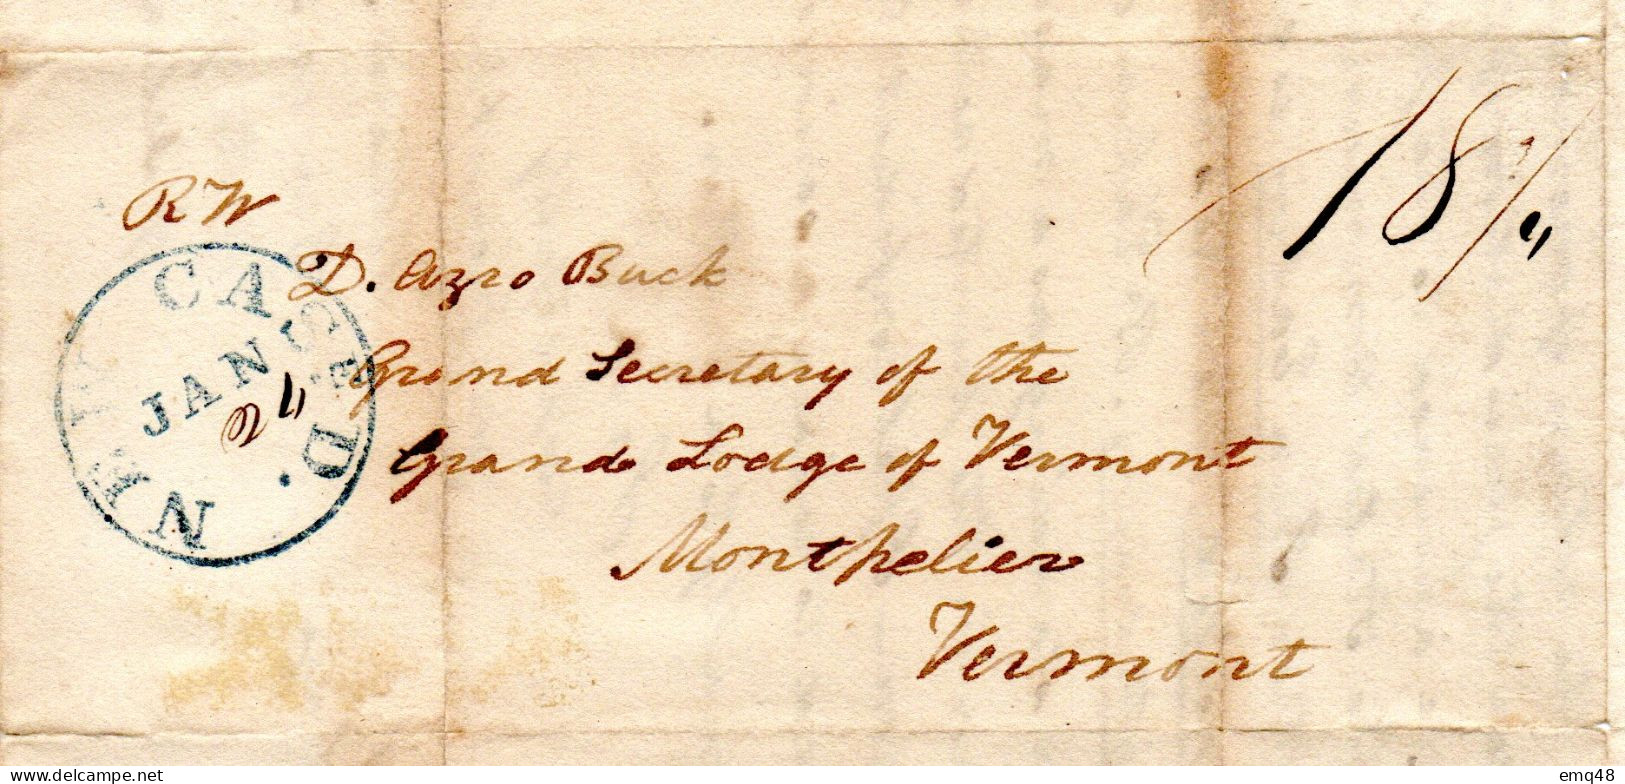 18 3/4
R W
NEW CASTLE. D.
JAN
24
D. Azro Buck
Grand Secretary of the
Grand Lodge of Vermont
Montpelier
Vermont
www.delcampe.net
emq48